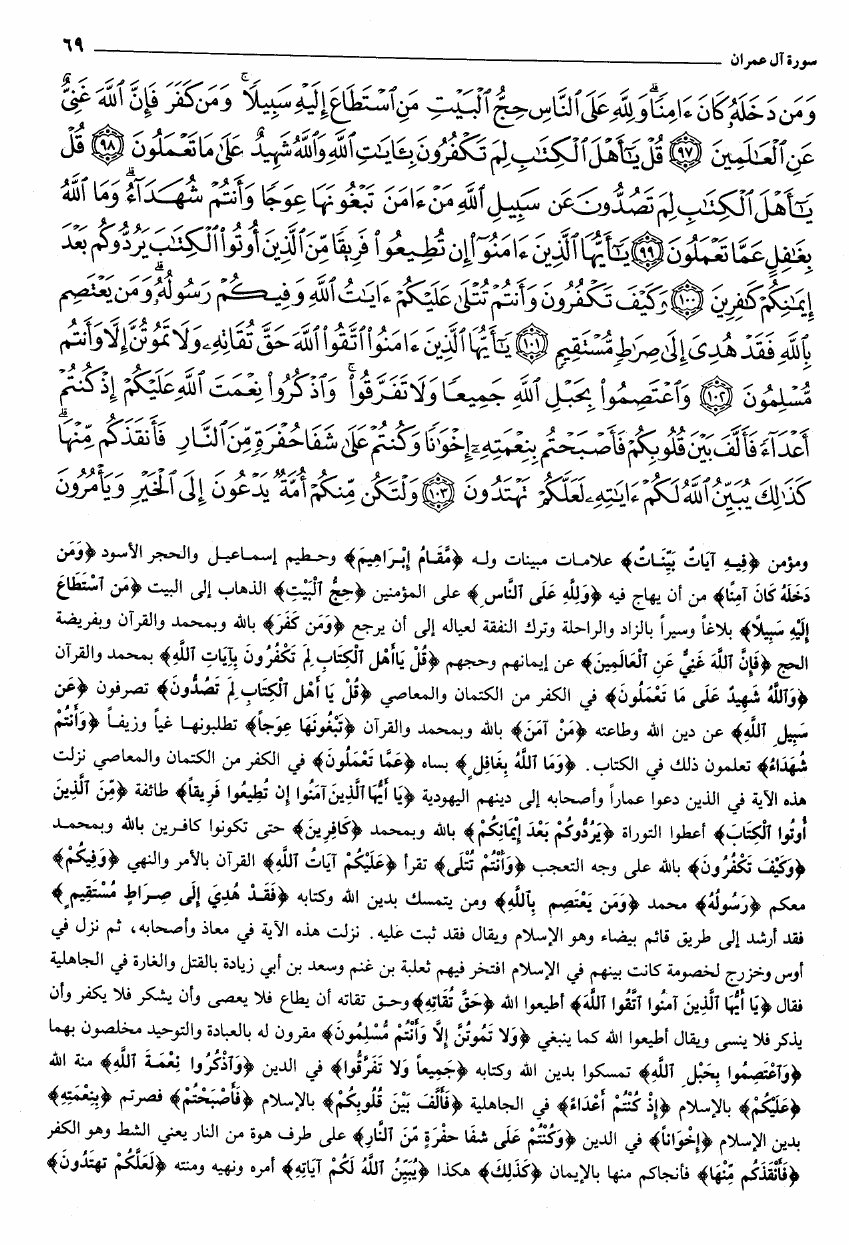 سورة آل عمران ٦٩
وَمَن دَخَلَهُۥ كَانَ ءَامِنٗاۗ وَلِلَّهِ عَلَى ٱلنَّاسِ حِجُّ ٱلۡبَيۡتِ مَنِ ٱسۡتَطَاعَ إِلَيۡهِ سَبِيلٗاۚ وَمَن كَفَرَ فَإِنَّ ٱللَّهَ غَنِيٌّ
عَنِ ٱلۡعَٰلَمِينَ ٩٧ قُلۡ يَٰٓأَهۡلَ ٱلۡكِتَٰبِ لِمَ تَكۡفُرُونَ بِـَٔايَٰتِ ٱللَّهِ وَٱللَّهُ شَهِيدٌ عَلَىٰ مَا تَعۡمَلُونَ ٩٨ قُلۡ
يَٰٓأَهۡلَ ٱلۡكِتَٰبِ لِمَ تَصُدُّونَ عَن سَبِيلِ ٱللَّهِ مَنۡ ءَامَنَ تَبۡغُونَهَا عِوَجٗا وَأَنتُمۡ شُهَدَآءُۗ وَمَا ٱللَّهُ
بِغَٰفِلٍ عَمَّا تَعۡمَلُونَ ٩٩ يَٰٓأَيُّهَا ٱلَّذِينَ ءَامَنُوٓاْ إِن تُطِيعُواْ فَرِيقٗا مِّنَ ٱلَّذِينَ أُوتُواْ ٱلۡكِتَٰبَ يَرُدُّوكُم بَعۡدَ
إِيمَٰنِكُمۡ كَٰفِرِينَ ١٠٠ وَكَيۡفَ تَكۡفُرُونَ وَأَنتُمۡ تُتۡلَىٰ عَلَيۡكُمۡ ءَايَٰتُ ٱللَّهِ وَفِيكُمۡ رَسُولُهُۥۗ وَمَن يَعۡتَصِم
بِٱللَّهِ فَقَدۡ هُدِيَ إِلَىٰ صِرَٰطٖ مُّسۡتَقِيمٖ ١٠١ يَٰٓأَيُّهَا ٱلَّذِينَ ءَامَنُواْ ٱتَّقُواْ ٱللَّهَ حَقَّ تُقَاتِهِۦ وَلَا تَمُوتُنَّ إِلَّا وَأَنتُم
مُّسۡلِمُونَ ١٠٢ وَٱعۡتَصِمُواْ بِحَبۡلِ ٱللَّهِ جَمِيعٗا وَلَا تَفَرَّقُواْۚ وَٱذۡكُرُواْ نِعۡمَتَ ٱللَّهِ عَلَيۡكُمۡ إِذۡ كُنتُمۡ
أَعۡدَآءٗ فَأَلَّفَ بَيۡنَ قُلُوبِكُمۡ فَأَصۡبَحۡتُم بِنِعۡمَتِهِۦٓ إِخۡوَٰنٗا وَكُنتُمۡ عَلَىٰ شَفَا حُفۡرَةٖ مِّنَ ٱلنَّارِ فَأَنقَذَكُم مِّنۡهَاۗ
كَذَٰلِكَ يُبَيِّنُ ٱللَّهُ لَكُمۡ ءَايَٰتِهِۦ لَعَلَّكُمۡ تَهۡتَدُونَ ١٠٣ وَلۡتَكُن مِّنكُمۡ أُمَّةٞ يَدۡعُونَ إِلَى ٱلۡخَيۡرِ وَيَأۡمُرُونَ
ومؤمن ﴿فِيهِ آيَاتٌ بَيِّنَاتٌ﴾ علامات مبينات وله ﴿مَّقَامُ إِبْرَاهِيمَ﴾ وحطيم إسماعيل والحجر الأسود ﴿وَمَن
دَخَلَهُ كَانَ آمِنًا﴾ من أن يهاج فيه ﴿وَلِلَّهِ عَلَى النَّاسِ﴾ على المؤمنين ﴿حِجُّ ٱلْبَيْتِ﴾ الذهاب إلى البيت ﴿مَنِ ٱسْتَطَاعَ
إِلَيْهِ سَبِيلًا﴾ بلاغاً وسيراً بالزاد والراحلة وترك النفقة لعياله إلى أن يرجع ﴿وَمَن كَفَرَ﴾ بالله وبمحمد والقرآن وبفريضة
الحج ﴿فَإِنَّ ٱللَّهَ غَنِيٌّ عَنِ ٱلْعَالَمِينَ﴾ عن إيمانهم وحجهم ﴿قُلْ يَاأَهْلَ ٱلْكِتَابِ لِمَ تَكْفُرُونَ بِآيَاتِ ٱللَّهِ﴾ بمحمد والقرآن
﴿وَٱللَّهُ شَهِيدٌ عَلَى مَا تَعْمَلُونَ﴾ في الكفر من الكتمان والمعاصي ﴿قُلْ يَا أَهْلَ ٱلْكِتَابِ لِمَ تَصُدُّونَ﴾ تصرفون ﴿عَن
سَبِيلِ ٱللَّهِ﴾ عن دين الله وطاعته ﴿مَنْ آمَنَ﴾ بالله وبمحمد والقرآن ﴿تَبْغُونَهَا عِوَجاً﴾ تطلبونها غياً وزيفاً ﴿وَأَنْتُمْ
شُهَدَاءُ﴾ تعلمون ذلك في الكتاب. ﴿وَمَا ٱللَّهُ بِغَافِلٍ﴾ بساه ﴿عَمَّا تَعْمَلُونَ﴾ في الكفر من الكتمان والمعاصي نزلت
هذه الآية في الذين دعوا عماراً وأصحابه إلى دينهم اليهودية ﴿يَا أَيُّهَا ٱلَّذِينَ آمَنُوا إِن تُطِيعُوا فَرِيقاً﴾ طائفة ﴿مِّنَ ٱلَّذِينَ
أُوتُوا ٱلْكِتَابَ﴾ أعطوا التوراة ﴿يَرُدُّوكُمْ بَعْدَ إِيمَانِكُمْ﴾ بالله وبمحمد ﴿كَافِرِينَ﴾ حتى تكونوا كافرين بالله وبمحمد
﴿وَكَيْفَ تَكْفُرُونَ﴾ بالله على وجه التعجب ﴿وَأَنْتُمْ تُتْلَى﴾ تقرأ ﴿عَلَيْكُمْ آيَاتُ ٱللَّهِ﴾ القرآن بالأمر والنهي ﴿وَفِيكُمْ﴾
معكم ﴿رَسُولُهُ﴾ محمد ﴿وَمَن يَعْتَصِم بِٱللَّهِ﴾ ومن يتمسك بدين الله وكتابه ﴿فَقَدْ هُدِيَ إِلَى صِرَاطٍ مُسْتَقِيمٍ﴾
فقد أرشد إلى طريق قائم بيضاء وهو الإسلام ويقال فقد ثبت عليه. نزلت هذه الآية في معاذ وأصحابه، ثم نزل في
أوس وخزرج لخصومة كانت بينهم في الإسلام افتخر فيهم ثعلبة بن غنم وسعد بن أبي زيادة بالقتل والغارة في الجاهلية
فقال ﴿يَا أَيُّهَا ٱلَّذِينَ آمَنُوا ٱتَّقُوا ٱللَّهَ﴾ أطيعوا الله ﴿حَقَّ تُقَاتِهِ﴾ وحق تقاته أن يطاع فلا يعصى وأن يشكر فلا يكفر وأن
يذكر فلا ينسى ويقال أطيعوا الله كما ينبغي ﴿وَلَا تَمُوتُنَّ إِلَّا وَأَنْتُمْ مُسْلِمُونَ﴾ مقرون له بالعبادة والتوحيد مخلصون بهما
﴿وَٱعْتَصِمُوا بِحَبْلِ ٱللَّهِ﴾ تمسكوا بدين الله وكتابه ﴿جَمِيعاً وَلَا تَفَرَّقُوا﴾ في الدين ﴿وَٱذْكُرُوا نِعْمَةَ ٱللَّهِ﴾ منة الله
﴿عَلَيْكُمْ﴾ بالإسلام ﴿إِذْ كُنْتُمْ أَعْدَاءً﴾ في الجاهلية ﴿فَأَلَّفَ بَيْنَ قُلُوبِكُمْ﴾ بالإسلام ﴿فَأَصْبَحْتُمْ﴾ فصرتم ﴿بِنِعْمَتِهِ﴾
بدين الإسلام ﴿إِخْوَاناً﴾ في الدين ﴿وَكُنْتُمْ عَلَى شَفَا حفْرَةٍ مِّنَ ٱلنَّارِ﴾ على طرف هوة من النار يعني الشط وهو الكفر
﴿فَأَنْقَذَكُم مِّنْهَا﴾ فأنجاكم منها بالإيمان ﴿كَذَلِكَ﴾ هكذا ﴿يُبَيِّنُ ٱللَّهُ لَكُمْ آيَاتِهِ﴾ أمره ونهيه ومنته ﴿لَعَلَّكُمْ تهتَدُونَ﴾